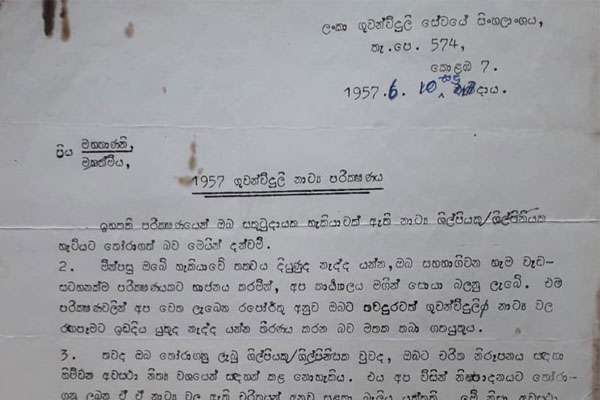 ලංකා ගුවන්විදුලි සේවයේ සිංහලාංශය,
තැ.පෙ. 574,
කොළඹ 7.
1957.6.10 සඳුදාය.
ප්‍රිය මහතාණනි,
මහත්මිය,
1957 ගුවන්විදුලි නාට්‍ය පරීක්‍ෂණය
ඉහතකී පරීක්‍ෂණයෙන් ඔබ සතුටුදායක හැකියාවක් ඇති නාට්‍ය ශිල්පියකු/ශිල්පිනියක
හැටියට තෝරාගත් බව මෙයින් දන්වමි.
2. මින්පසු ඔබේ හැකියාවේ තත්වය දියුණුද නැද්ද යන්න, ඔබ සහභාගිවන හැම වැඩ-
සටහනක්ම පරීක්‍ෂණයකට භාජනය කරමින්, අප කාර්‍ය්‍යාලය මගින් සොයා බලනු ලැබේ. එම
පරීක්‍ෂණවලින් අප වෙත ලැබෙන රපෝර්තු අනුව ඔබට තවදුරටත් ගුවන්විදුලි නාට්‍ය වල
රඟපෑමට ඉඩදිය යුතුද නැද්ද යන්න තීරණය කරන බව මතක තබා ගතයුතුය.
3. තවද ඔබ තෝරාගනු ලැබූ ශිල්පියකු/ශිල්පිනියක වුවද, ඔබට චරිත නිරූපනය සඳහා
හිමිවන අවස්ථා නිත්‍ය වශයෙන් සඳහන් කළ නොහැකිය. එය අප විසින් නිෂ්පාදනයට තෝරා-
ගනු ලබන ඒ ඒ නාට්‍ය වල ඇති චරිතයන් අනුව සළකා බැලිය යුත්තකි. මේ නිසා අවස්ථා